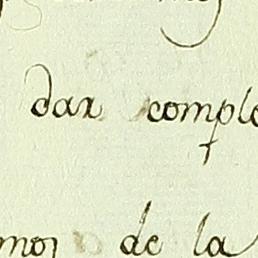 dar comple
mos de la